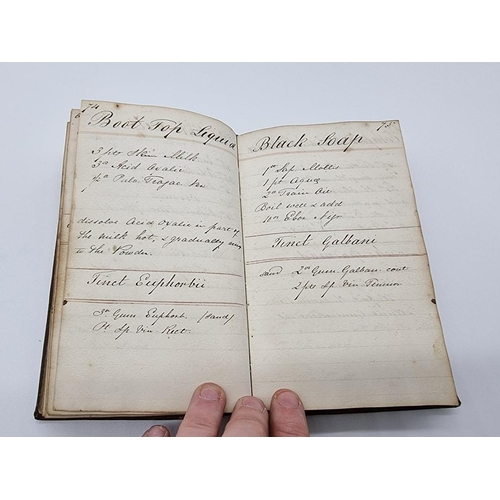 74
Boot Top Liquid
3 pts Skim Milk
Acid Oxalic
Pulv Tragac
dissolve Acid Oxalic in part of
the milk hot, & gradually
to the Powder.
Tinct Euphorbii
Gum Euphorb (sand)
Pt Sp Vin Rect
75
Black Soap
Sap Mollis
1 pt Aqua
Train Oil
Boil well & add
Ebor Nigr
Tinct Galbani
sand Gum Galban cont
2 pts Sp Vin Tenuior